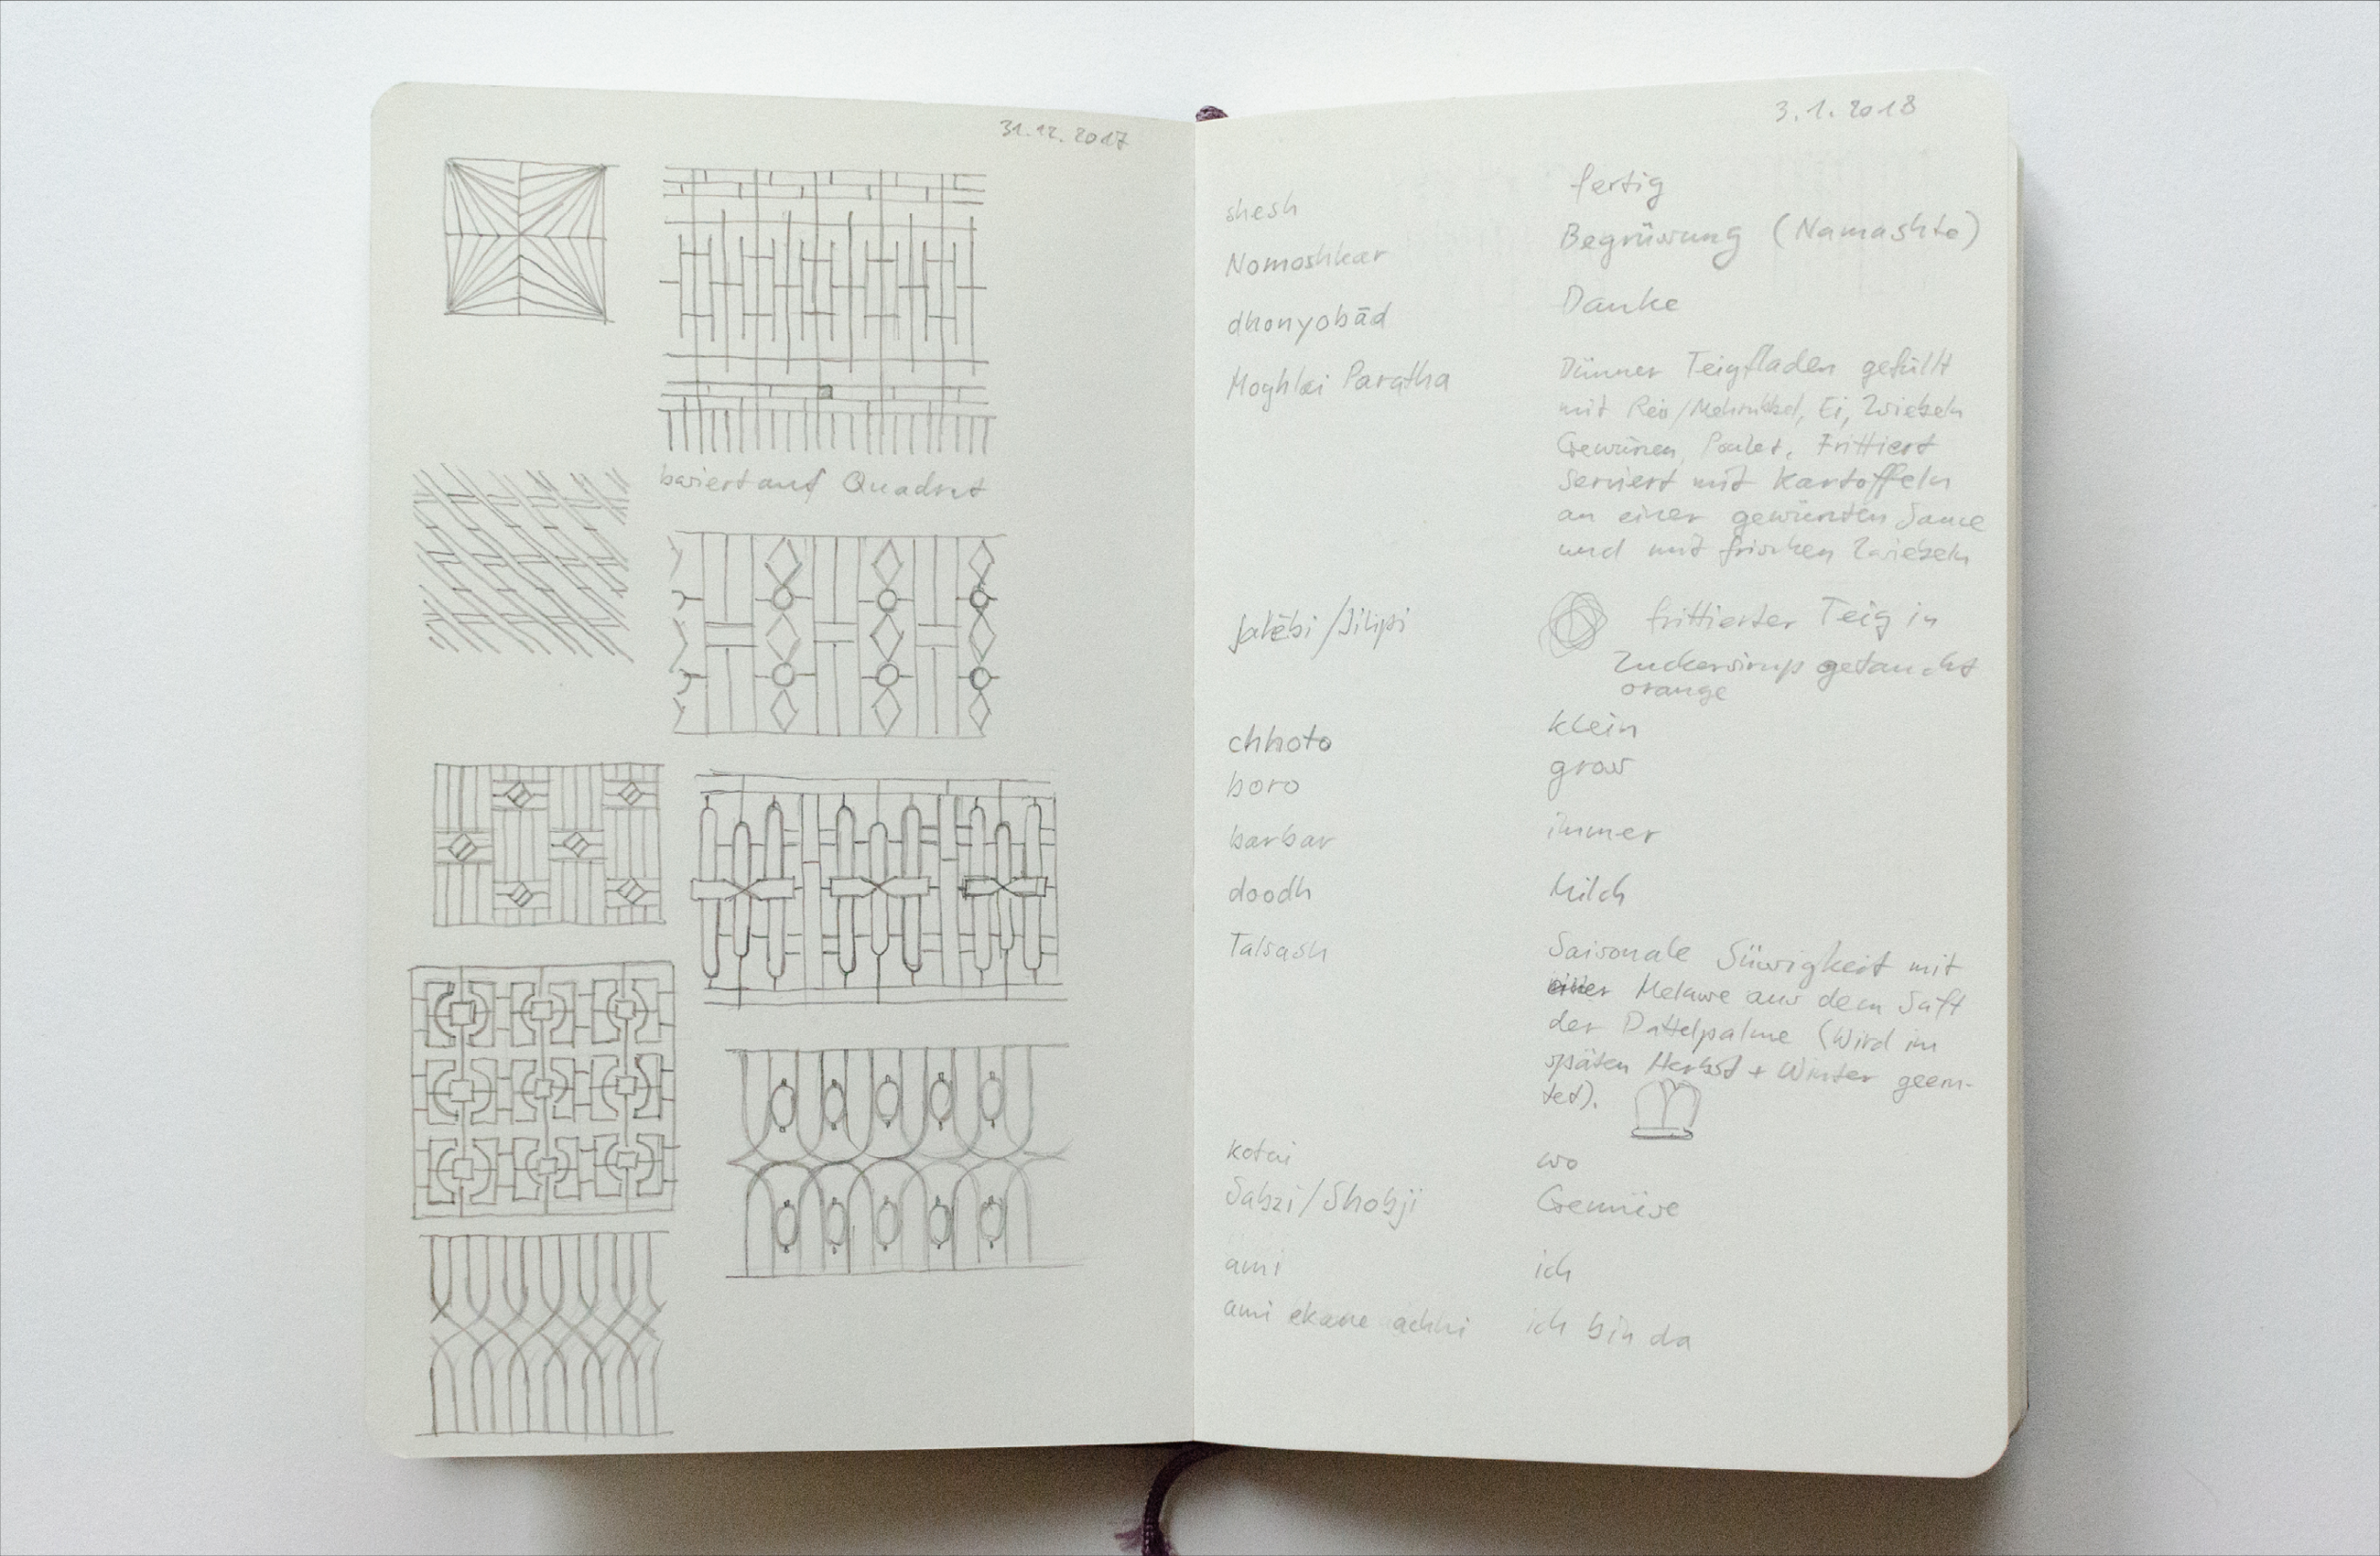 31.12.2017
basiert auf Quadrat
3.1.2018
shesh fertig
Nomoshkar Begrüssung (Namashte)
dhonyobād Danke
Moghlai Paratha Dünner Teigfladen gefüllt
mit Reis/Mehl, Ei, Zwiebeln
Gewürzen, Poulet, Frittiert
serviert mit Kartoffeln
an einer gewürzten Sauce
und mit frischen Zwiebeln
Jalēbi/Jilipi frittierter Teig in
Zuckersirup getaucht
orange
chhoto klein
boro gross
barbar immer
doodh Milch
Talsash Saisonale Süssigkeit mit
einer Melasse aus dem Saft
der Dattelpalme (Wird im
späten Herbst + Winter geern-
tet).
kotai wo
Sabzi/Shobji Gemüse
ami ich
ami ekane achhi ich bin da